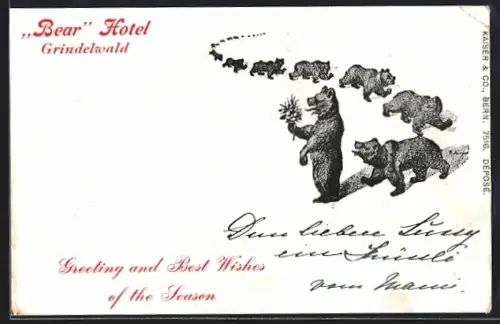 „Bear” Hotel
Grindelwald
KAISER & CO., BERN. 7516. DEPOSÉ.
Dem lieben Sussy
ein
vom Mami.
Greeting and Best Wishes
of the Season